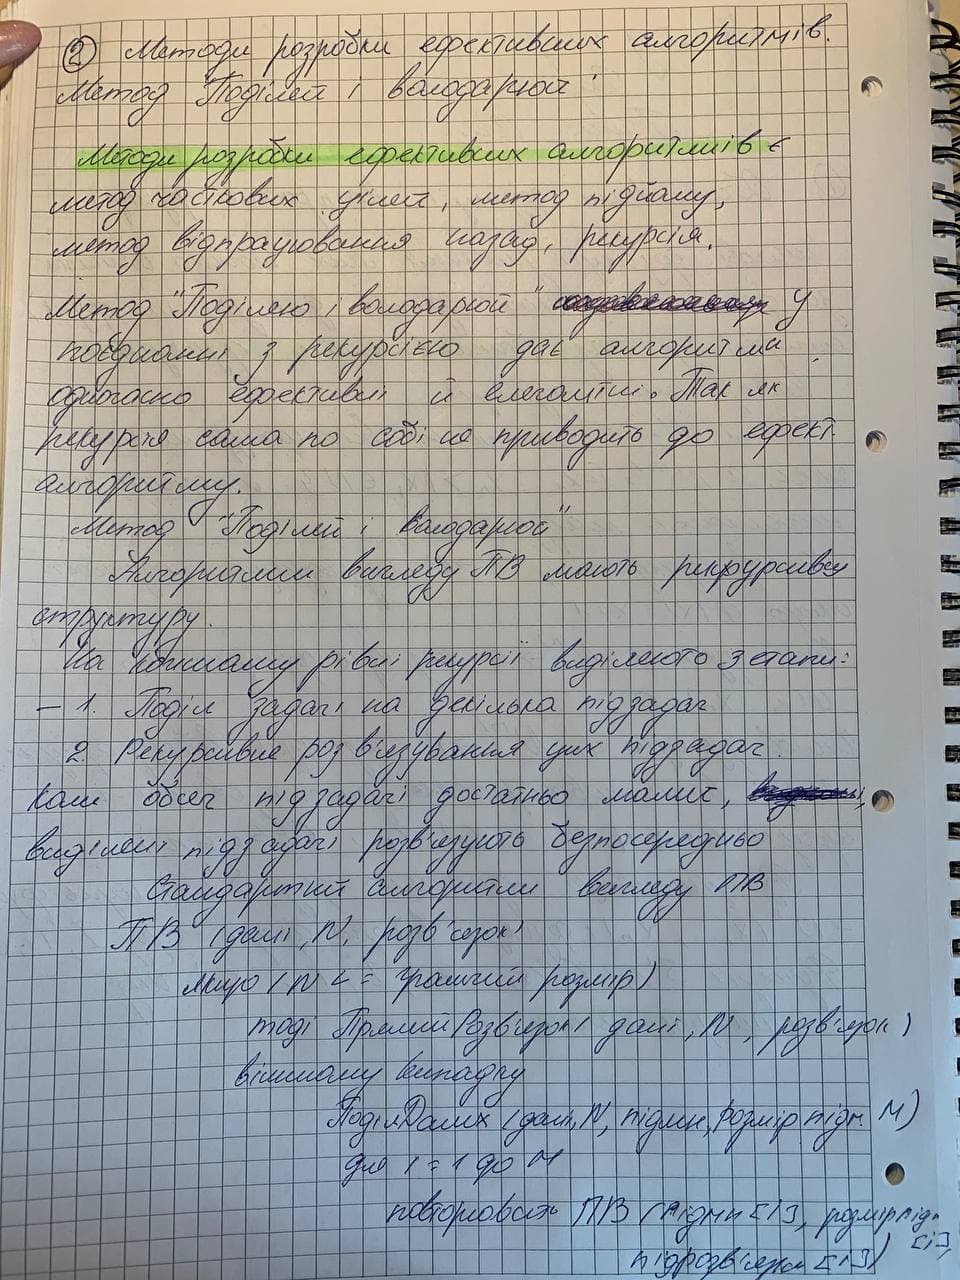 ② Методи розробки ефективних алгоритмів.
Метод Поділяй і володарюй
Методи розробки ефективних алгоритмів є
метод часткових цілей, метод підйому,
метод відпрацювання назад, рекурсія.
Метод "Поділяю і володарюй" у
поєднанні з рекурсією дає алгоритми
одночасно ефективні й елегантні. Так як
рекурсія сама по собі не приводить до ефект.
алгоритму.
Метод "Поділяй і володарюй"
Алгоритми вигляду ПВ мають рекурсивну
структуру.
На кожному рівні рекурсії виділяють 3 етапи:
– 1. Поділ задачі на декілька підзадач
2. Рекурсивне розв'язування цих підзадач.
Коли обсяг підзадачі достатньо малий,
виділені підзадачі розв'язують безпосередньо
Стандартний алгоритм вигляду ПВ
ПВ (дані, N, розв'язок)
якщо (N <= граничий розмір)
тоді ПрямийРозв'язок (дані, N, розв'язок)
в іншому випадку
ПоділДаних (дані, N, підмн, Розмір підм. М)
для i = 1 до М
повторювать ПВ (підмн [i], розмір підм
[i],
підрозв'язки [i])